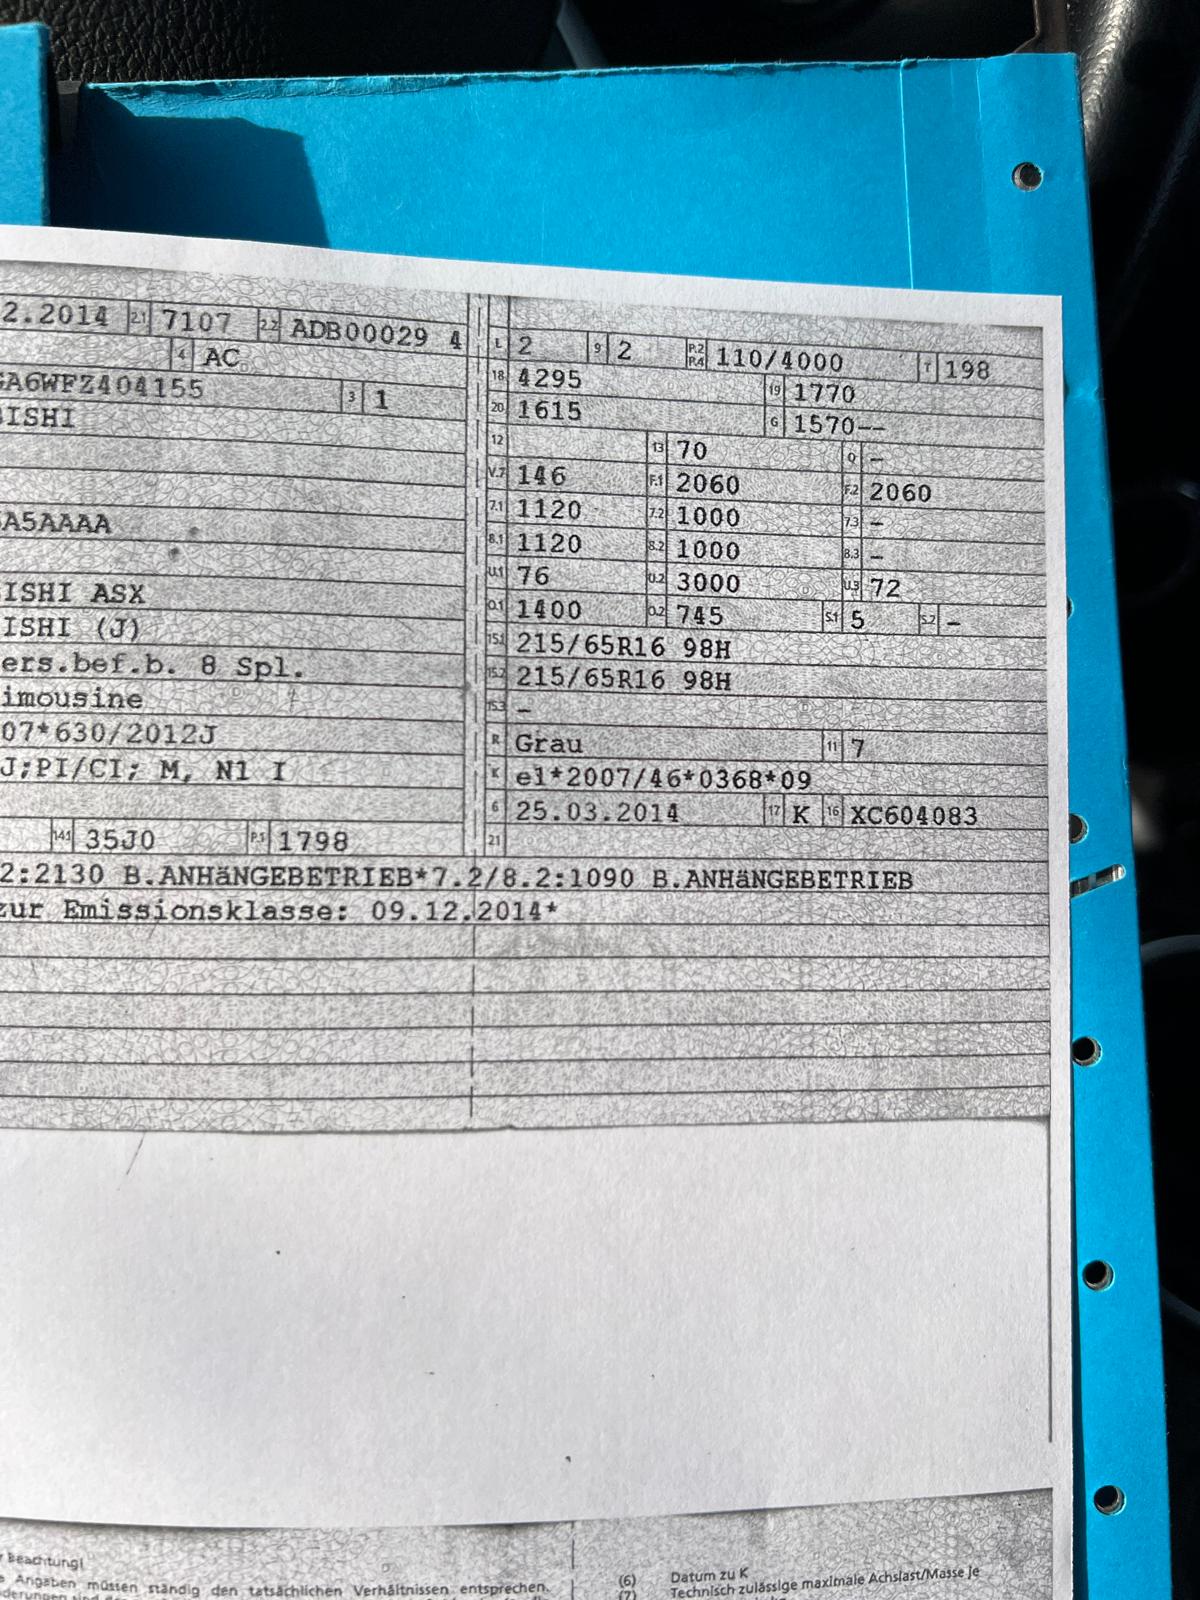 2.2014 2.1 7107 2.2 ADB00029 4
4 AC
GA6WFZ404155 3 1
BISHI
A5AAAA
ISHI ASX
ISHI (J)
ers.bef.b. 8 Spl.
imousine
07*630/2012J
J;PI/CI; M, N1 I
14.1 35J0 P.1 1798
L 2 9 2 P.2 P.4 110/4000 T 198
18 4295 19 1770
20 1615 G 1570--
12 13 70 Q -
V.7 146 F.1 2060 F.2 2060
7.1 1120 7.2 1000 7.3 -
8.1 1120 8.2 1000 8.3 -
U.1 76 U.2 3000 U.3 72
O.1 1400 O.2 745 S.1 5 S.2 -
15.1 215/65R16 98H
15.2 215/65R16 98H
15.3 -
R Grau 11 7
K e1*2007/46*0368*09
6 25.03.2014 17 K 16 XC604083
21
2:2130 B.ANHäNGEBETRIEB*7.2/8.2:1090 B.ANHäNGEBETRIEB
zur Emissionsklasse: 09.12.2014*
r Beachtung!
e Angaben müssen ständig den tatsächlichen Verhältnissen entsprechen.
(6) Datum zu K
(7) Technisch zulässige maximale Achslast/Masse je